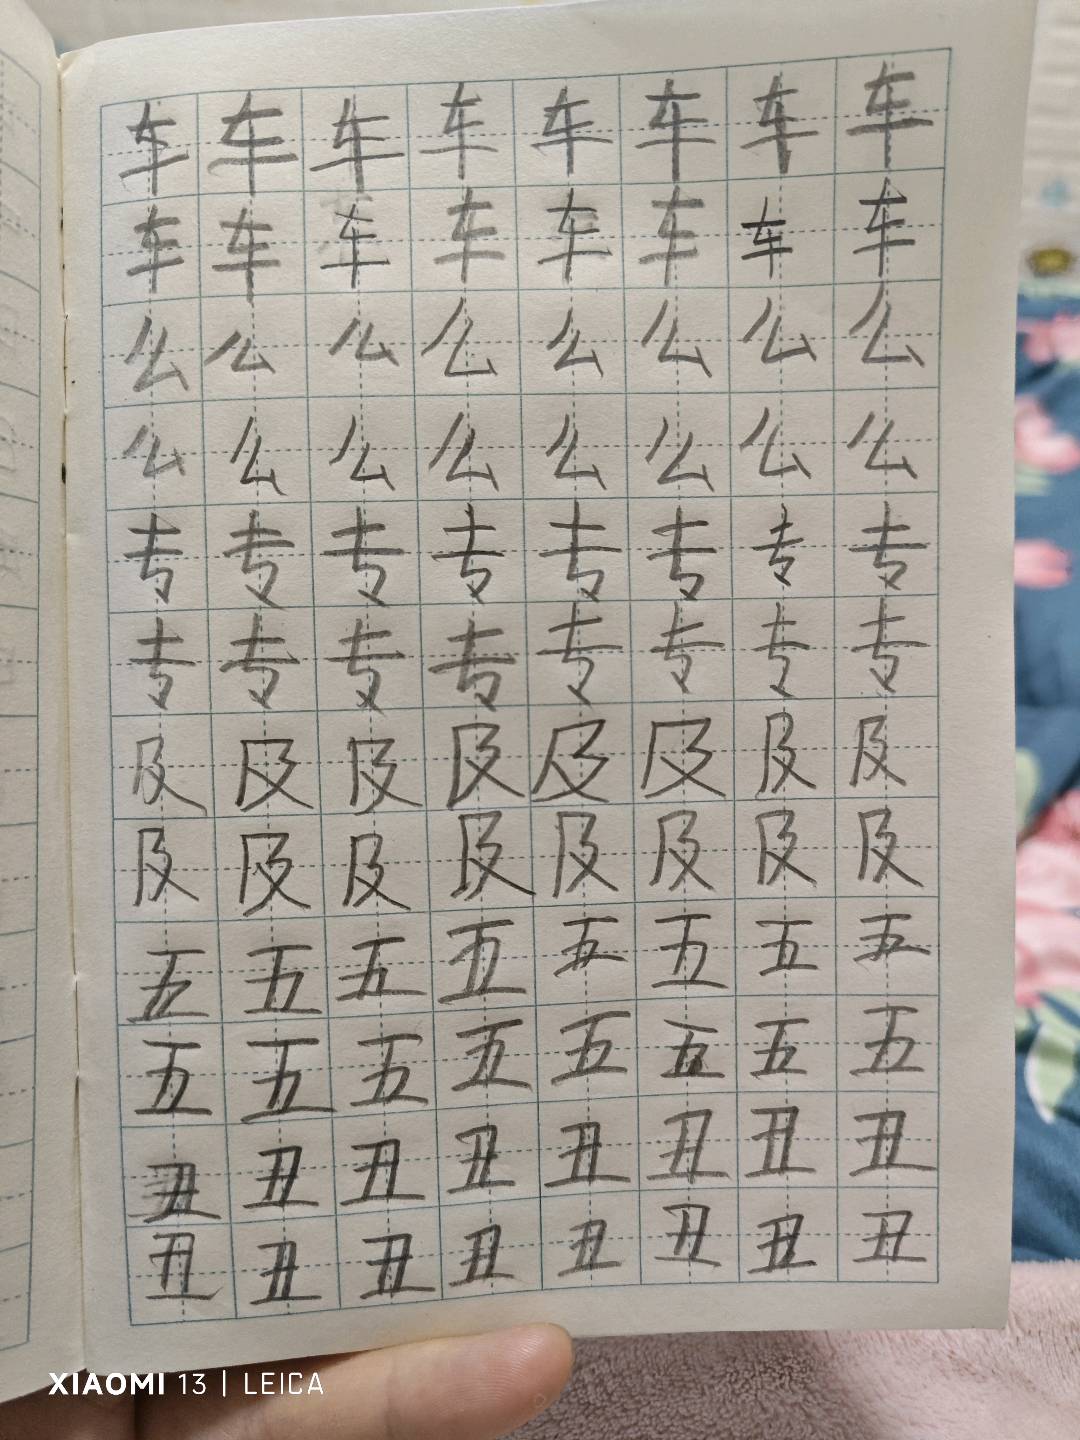 车车车车车车车车
车车车车车车车车
么么么么么么么么
么么么么么么么么
专专专专专专专专
专专专专专专专专
及及及及及及及及
及及及及及及及及
五五五五五五五五
五五五五五五五五
丑丑丑丑丑丑丑丑
丑丑丑丑丑丑丑丑
XIAOMI 13 | LEICA